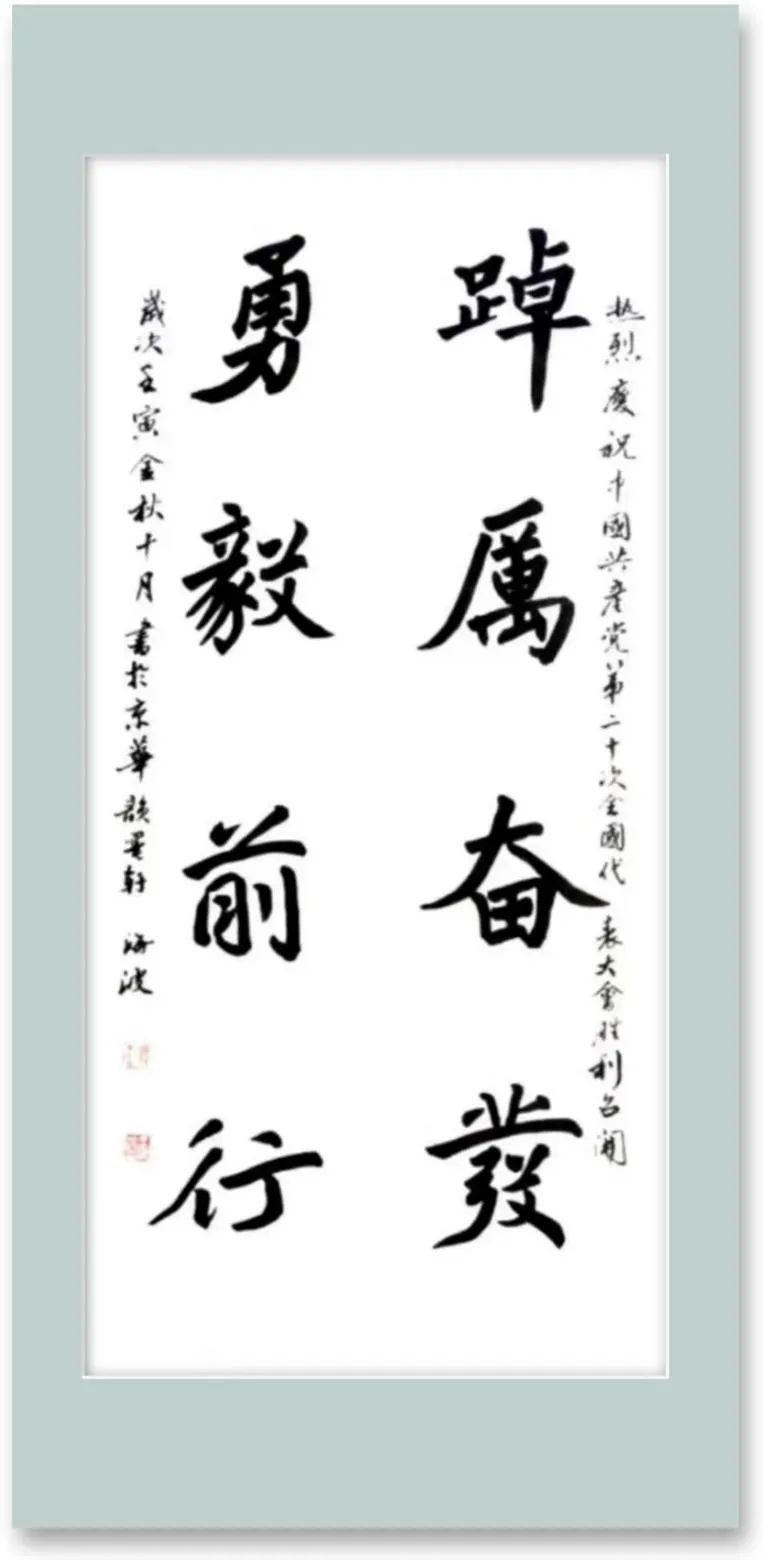 热烈慶祝中國共産党第二十次全國代表大會胜利召開
踔厲奋發
勇毅前行
歲次壬寅金秋十月書於京華韻墨軒 海波